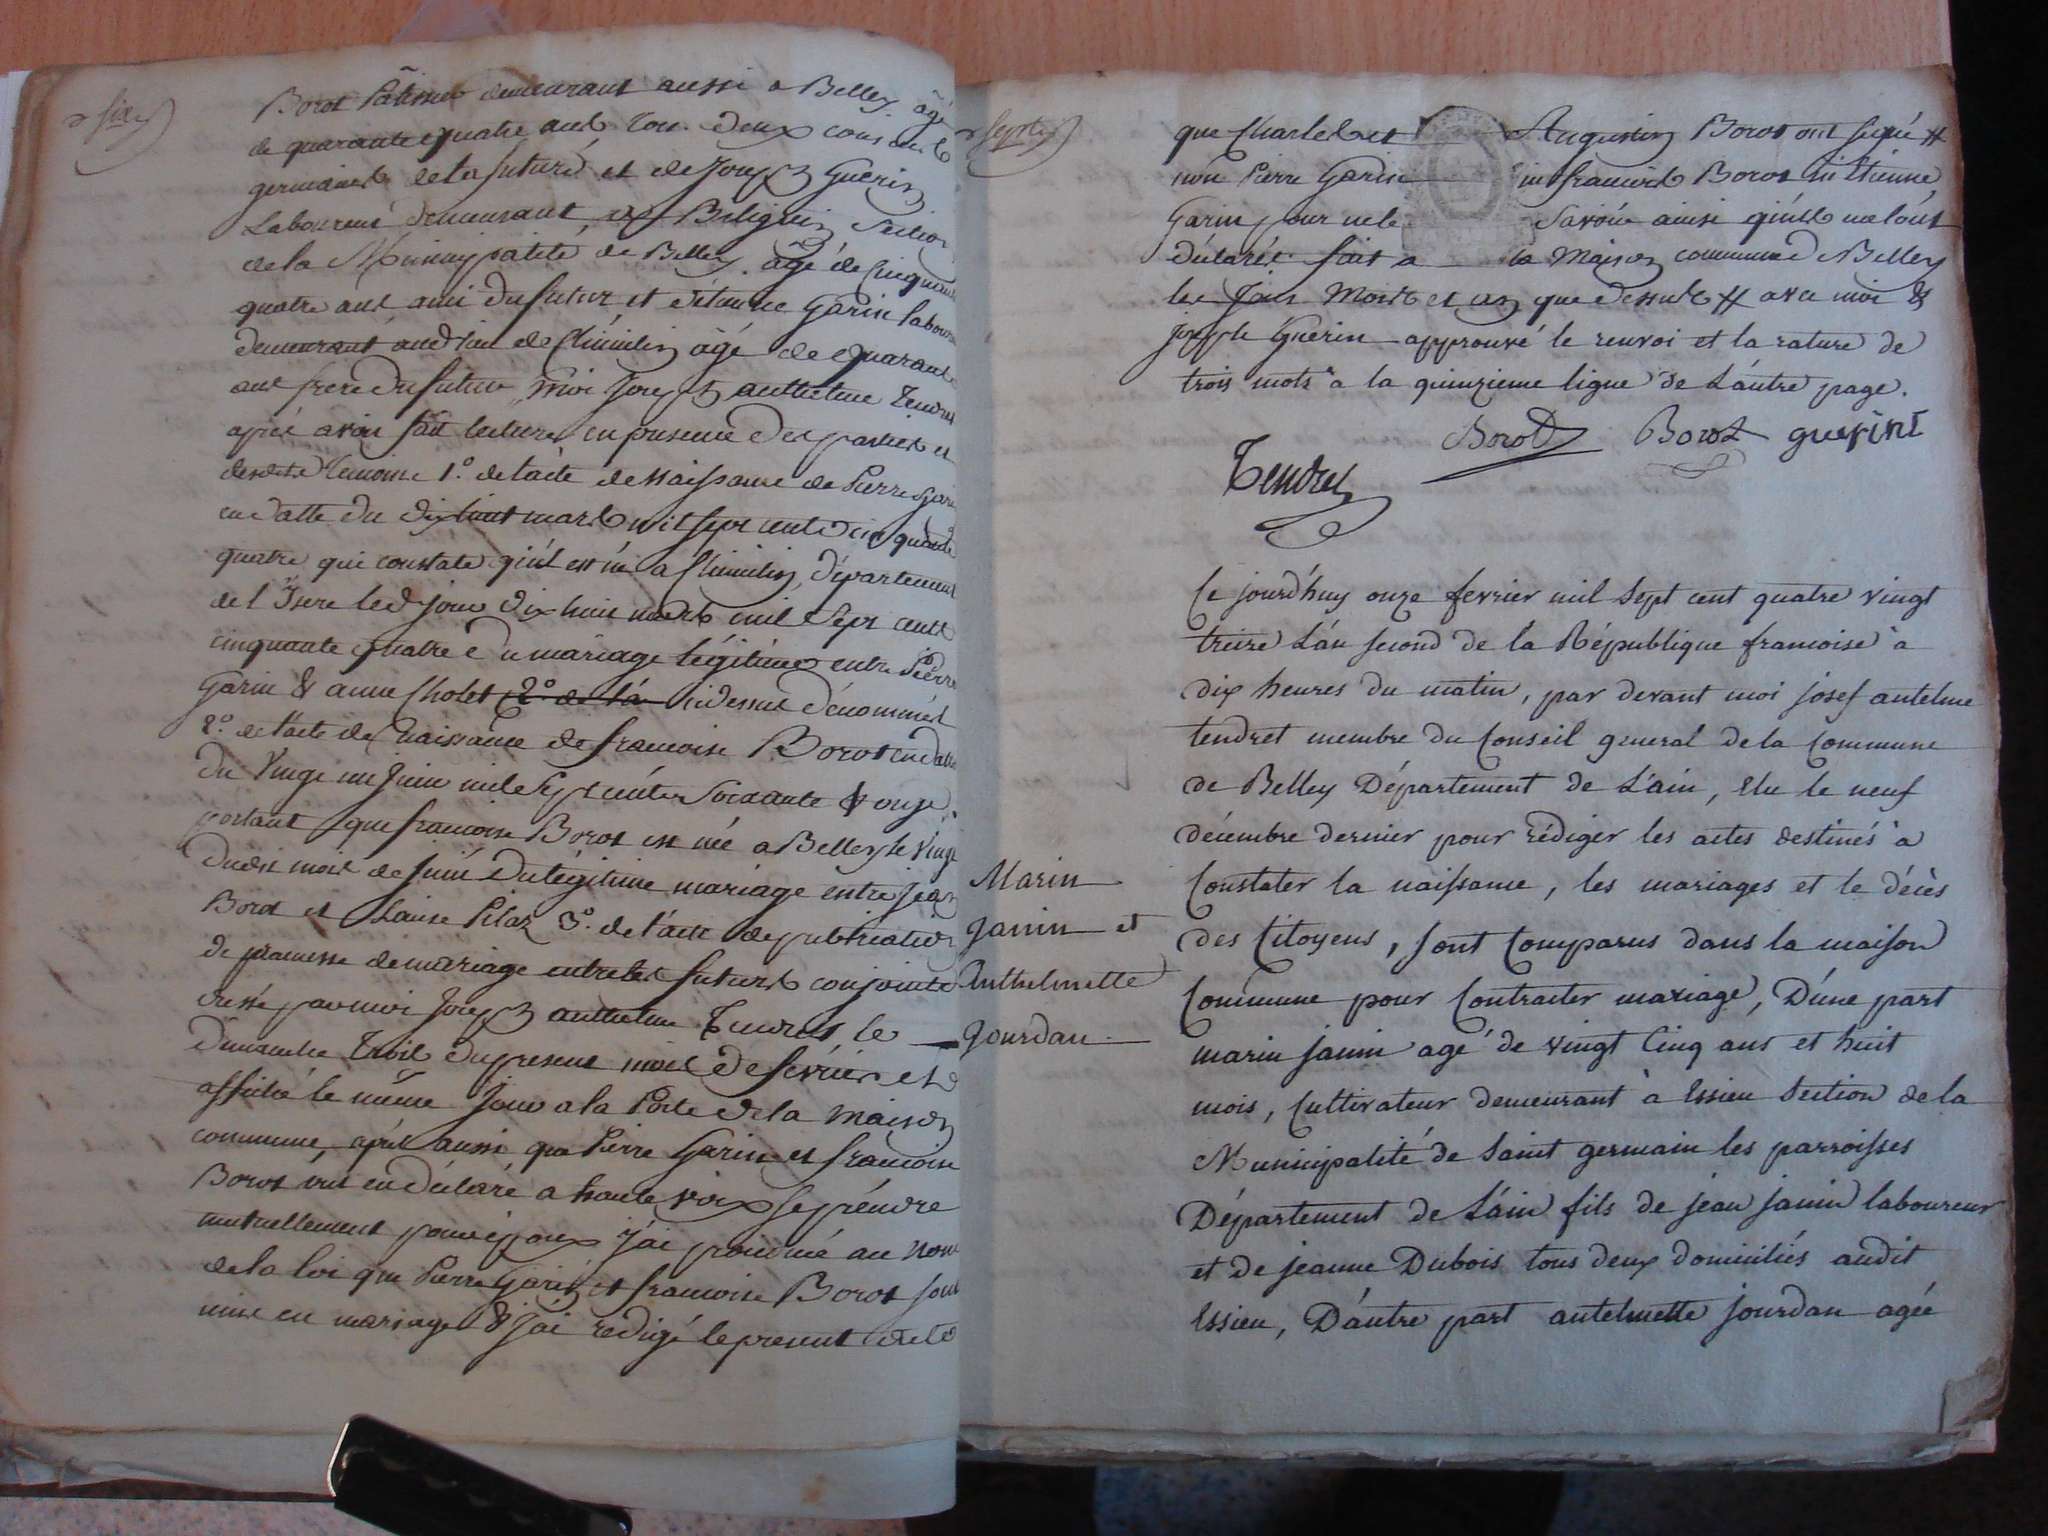 six
Borot Pâtissier demeurant aussi a Belley. âgé
de quarante quatre ans tous deux cousins
germains de la future et de Joseph Guerin
Laboureur demeurant a Billignin Section
de la Municipalité de Belley. âgé de Cinquante
quatre ans ami du futur et etienne Garin labour
demeurant audit lieu de Chimilin âgé de quarante
ans frere du futur, Moi Joseph anthelme Tendret
après avoir fait lecture en presence des parties et
desdits temoins 1.º de l'acte de Naissance de Pierre Garin
en datte du dix huit mars mil sept cents cinquante
quatre qui constate qu'il est né a Chimilin, département
de l'Isere led. jour dix huit mars mil sept cents
cinquante quatre du mariage légitime entre Pierre
Garin & anne Cholet 2º de l'a ci dessus dénommés
2.º de l'acte de Naissance de francoise Borot en datte
du Vingt un Juin mil Sept cents Soixante & onze.
portant que francoise Borot est née a Belley le Vingt
dudit mois de Juin du légitime mariage entre Jean
Borot et Louise Pilaz 3.º de l'acte de publication
de promesse de mariage entre les futurs conjoints
dressé par moi Joseph anthelme Tendret le
Dimanche trois du present mois de fevrier et
affiché le même Jour a la Porte de la Maison
commune, après aussi que Pierre Garin et francoise
Borot ont eu déclaré a haute voix se prendre
mutuellement pour époux J'ai prononcé au nom
de la loi que Pierre Garin et francoise Borot sont
unis en mariage & J'ai redigé le present acte
Sept
que Charles et Augustin Borot ont signé #
non Pierre Garin ni francoise Borot ni Etienne
Garin pour ne le Savoir ainsi qu'ils nel'ont
déclaré. fait a la Maison commune de Belley
les Jour Mois et an que dessus # avec moi &
Joseph Guerin approuvé le renvoi et la rature de
trois mots a la quinzieme ligne de L'autre page.
Borot Borot guerint
Tendret
Ce jourd'huy onze fevrier mil sept cent quatre vingt
treize L'an second de la République francoise à
dix heures du matin, par devant moi josef antelme
tendret membre du Conseil general de la Commune
de Belley Département de L'ain, Elu le neuf
décembre dernier pour rédiger les actes destinés à
Constater la naissance, les mariages et le décès
des Citoyens, sont Comparus dans la maison
Commune pour Contracter mariage, D'une part
marin janin agé de vingt Cinq ans et huit
mois, Cultivateur demeurant à Essieu Section de la
Municipalité de Saint germain les parroisses
Département de L'ain fils de jean janin laboureur
et de jeanne Dubois tous deux domiciliés audit
Essieu, D'autre part antelmette jourdan agée
Marin
Janin et
Anthelmette
Jourdan